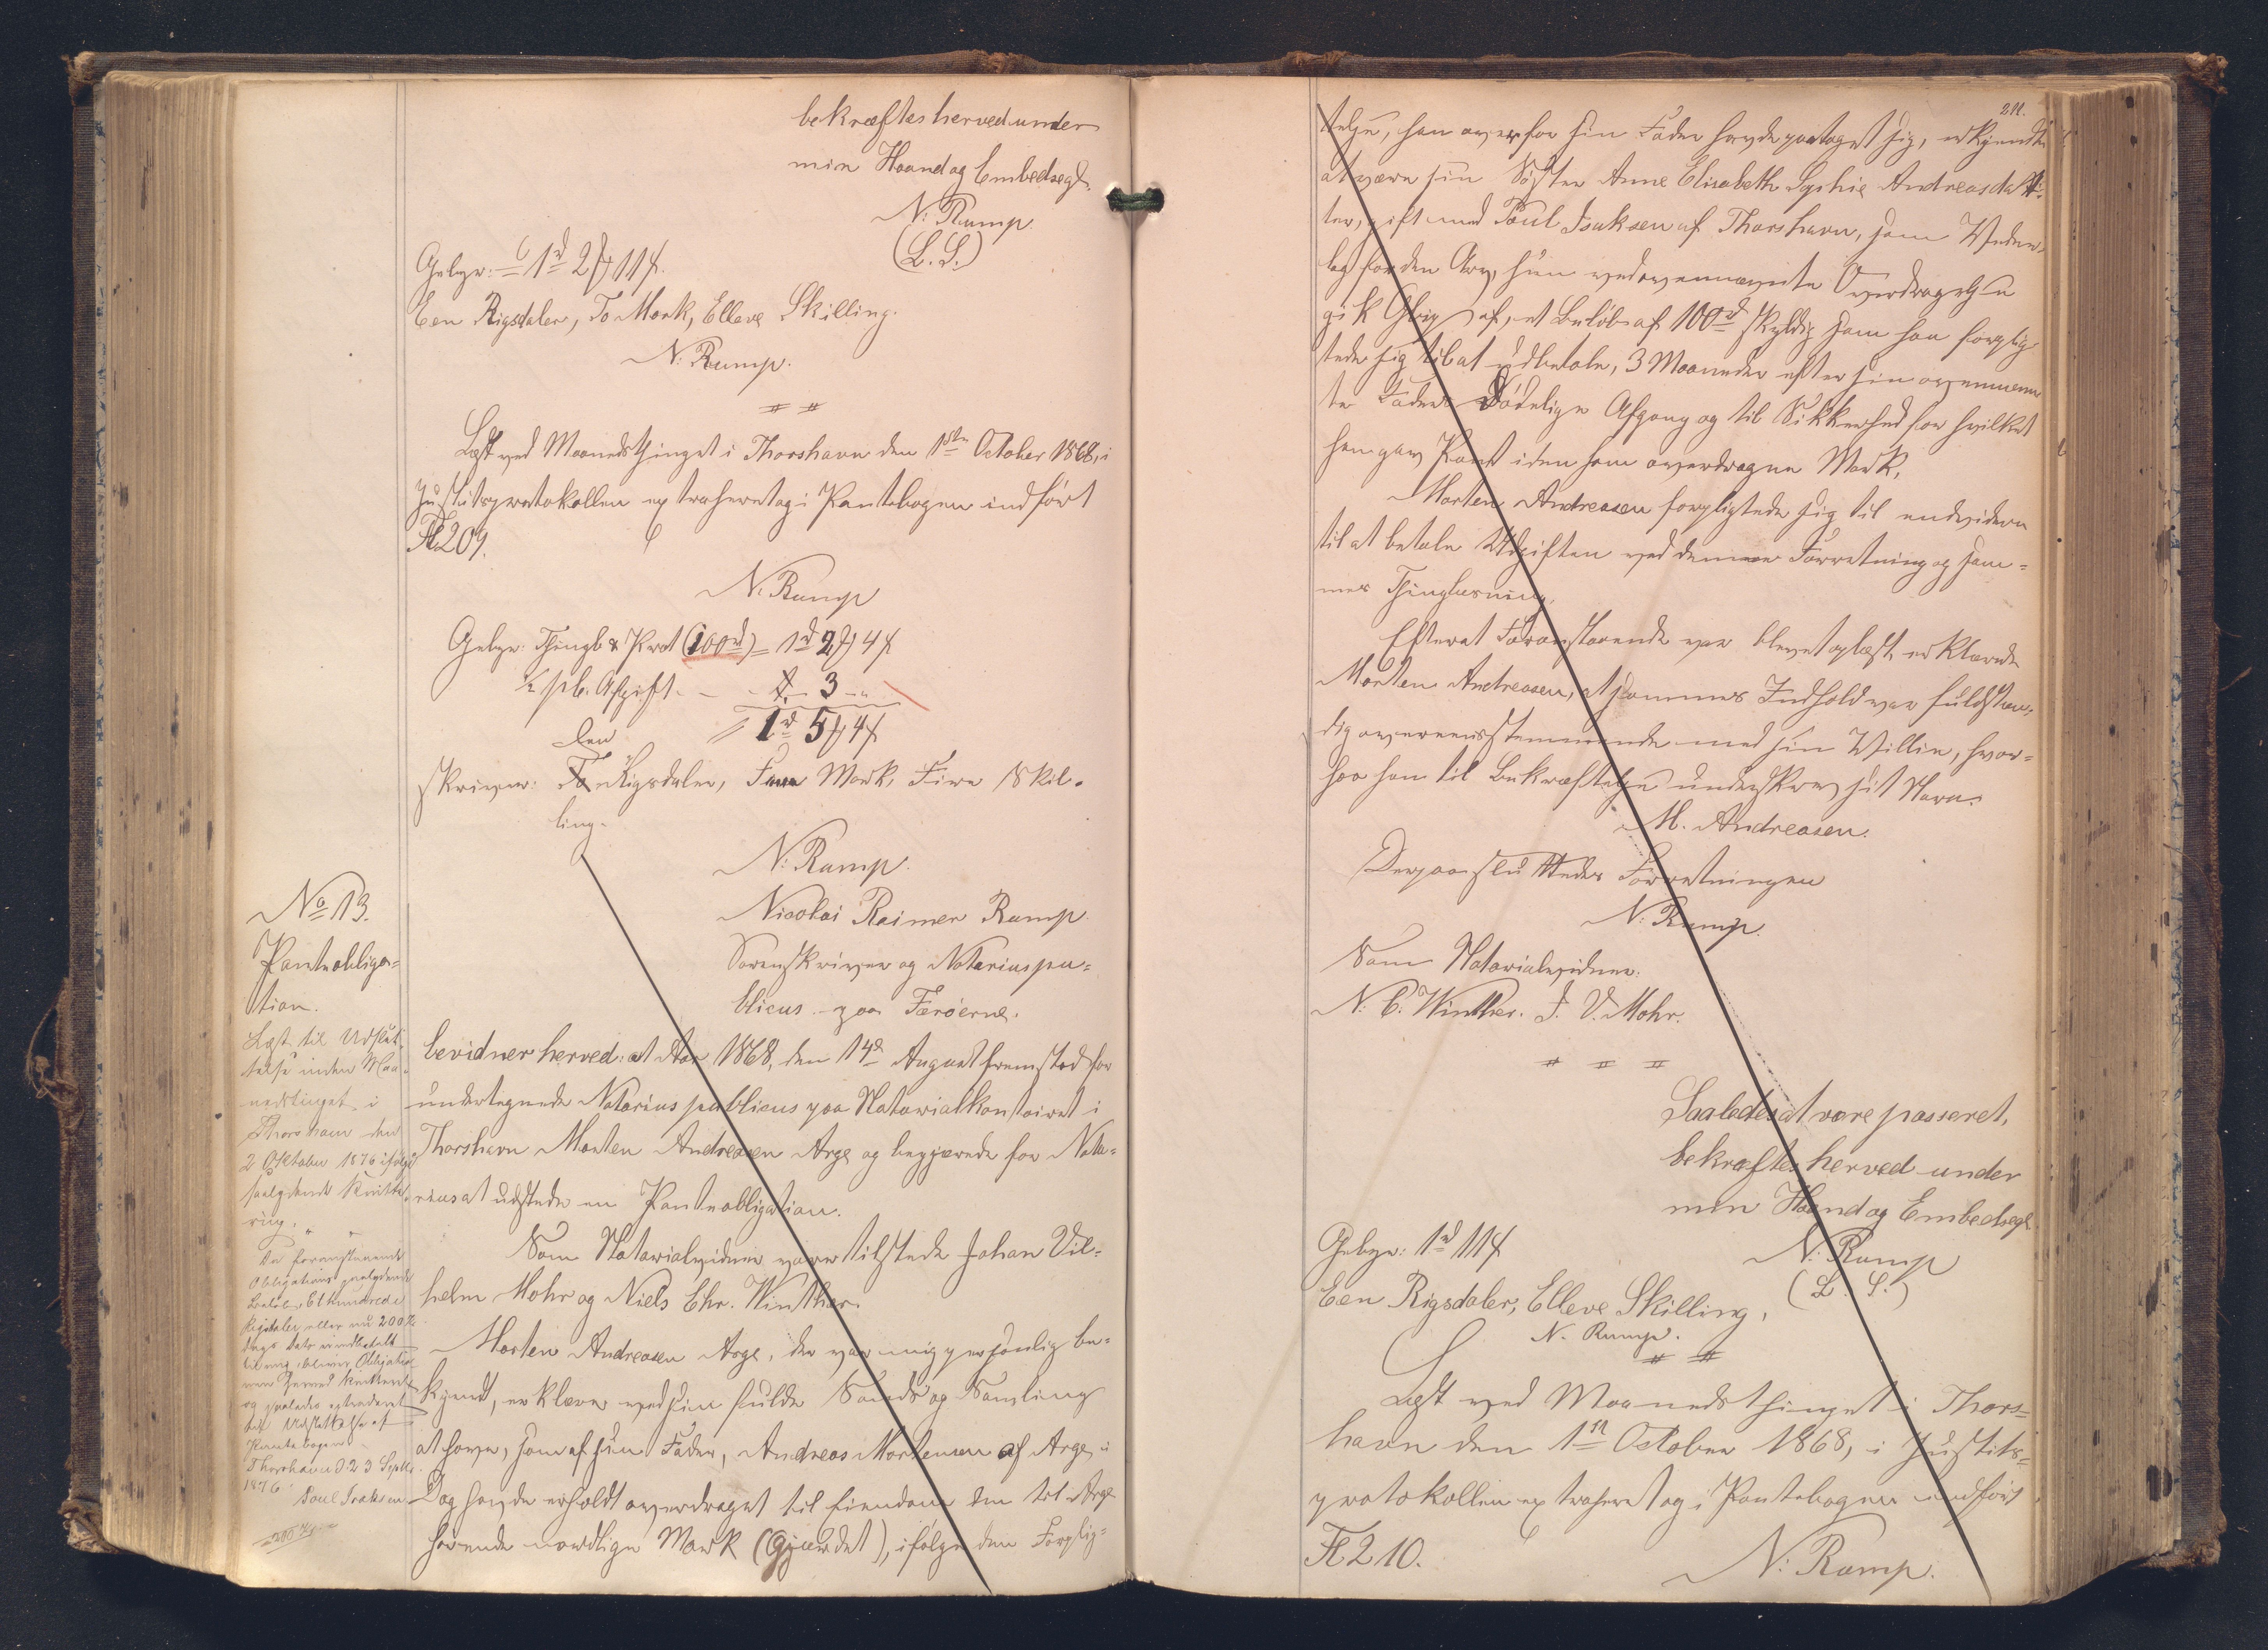 bekræftes herved under
min Haand og Embedssegl.
N: Rump.
(L. S.)
Gebyr: 1rd 2 ℔ 11 ſ.
Een Rigsdaler, To Mark, Elleve Skilling.
N: Rump.
Læst ved Maanedsthinget i Thorshavn den 1ste October 1868, i
Justitsprotokollen extraheret og i Pantebogen indført
Fl 209.
N: Rump
Gebyr: Thingl & Prot (100rd) = 1rd 2 ℔ 4 ſ
½ pC. Afgift - 3 -
1rd 5 ℔ 4 ſ
Een
skriver: To Rigsdaler, Fem Mark, Fire Skil-
ling.
N: Rump.
Nicolai Reimer Rump
Sorenskriver og Notarius pu-
blicus paa Færøerne.
No 13.
Panteobliga-
tion.
Læst til Udslet-
telse inden Maa-
nedstinget i
Thorshavn den
2 Oktober 1876 ifølge
paategnede Kvitte-
ring.
Da foranstaaende
Obligations paalydende
Beløb, Et hundrede
Rigsdaler eller nu 200 Kr
Dags Dato er indbetalt
til mig, bliver Obligatio-
nen herved kvitteret
og saaledes extraderet
til Udslettelse af
Pantebogen.
Thorshavn d. 23 Septbr
1876. Poul Isaksen
200 Kr
bevidner herved: at Aar 1868, den 14de August fremstod for
undertegnede Notarius publicus paa Notarialkontoiret i
Thorshavn Morten Andreasen Arge og begjærede for Nota-
rius at udstede en Panteobligation.
Som Notarialvidner vare tilstede Johan Vil-
helm Mohr og Niels Chr. Winther.
Morten Andreasen Arge, der var mig personlig be-
kjendt, erklærer ved sin fulde Sands og Samling
at have, som af sin Fader, Andreas Mortensen af Arge, i
Dag havde erholdt overdraget til Eiendom den til Arge
hørende nordlige Mark (Gjærdet), ifølge den Forplig-
211.
telse, han overfor sin Fader havde paataget sig, erkjendte
at være sin Søster Anne Elisabeth Sophie Andreasdat-
ter, gift med Poul Isaksen af Thorshavn, som Veder-
lag for den Arv, hun ved ovennævnte Overdragelse
gik Glip af, et Beløb af 100rd skyldig som han forplig-
tede sig til at udbetale, 3 Maaneder efter sin ovennævn-
te Faders Dødelige Afgang og til Sikkerhed for hvilket
han gav Pant i den ham overdragne Mark.
Morten Andreasen forpligtede sig til endvidere
til at betale Udgiften ved denne Forretning og sam-
mes Thinglæsning.
Efterat Foranstaaende var blevet oplæst, erklærede
Morten Andreasen, at sammes Indhold var fuldstæn-
dig overeensstemmende med sin Villie, hvor-
paa han til Bekræftelse underskrev sit Navn.
M. Andreasen.
Derpaa sluttedes Forretningen
N: Rump.
Som Notarialvidner:
N: C. Winther. J. V. Mohr.
Saaledes at være passeret,
bekræftes herved under
min Haand og Embedssegl.
N: Rump
(L. S.)
Gebyr: 1rd 11 ſ
Een Rigsdaler, Elleve Skilling.
N. Rump.
Læst ved Maanedsthinget i Thors-
havn den 1ste October 1868, i Justits-
protokollen extraheret og i Pantebogen indført
Fl 210.
N: Rump.